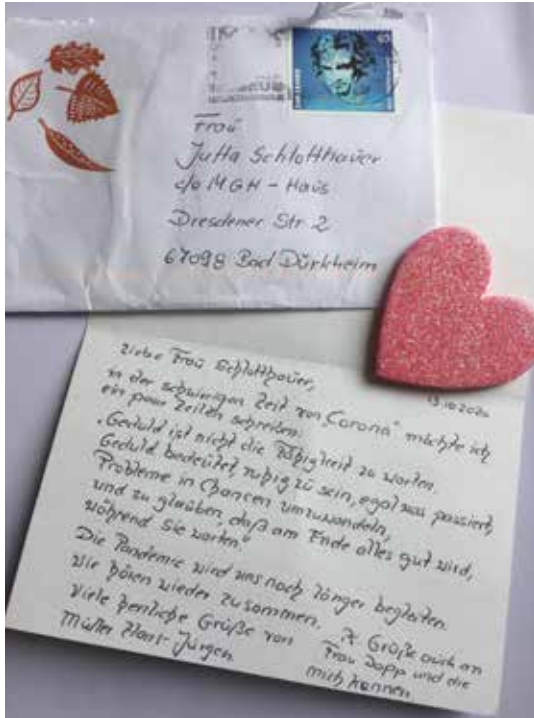 65
Frau
Jutta Schlotthauer
c/o MGH - Haus
Dresdener Str 2
67098 Bad Dürkheim
13.10.2020
Liebe Frau Schlotthauer,
in der schwierigen Zeit von "Corona" möchte ich
ein paar Zeilen schreiben.
"Geduld ist nicht die Fähigkeit zu warten.
Geduld bedeutet, ruhig zu sein, egal was passiert,
Probleme in Chancen umzuwandeln,
und zu glauben, daß am Ende alles gut wird,
während Sie warten."
Die Pandemie wird uns noch länger begleiten.
Wir hören wieder zusammen.
Viele herzliche Grüße von
Müller Hans-Jürgen
Grüße auch an
Frau Dopp und die
mich kennen